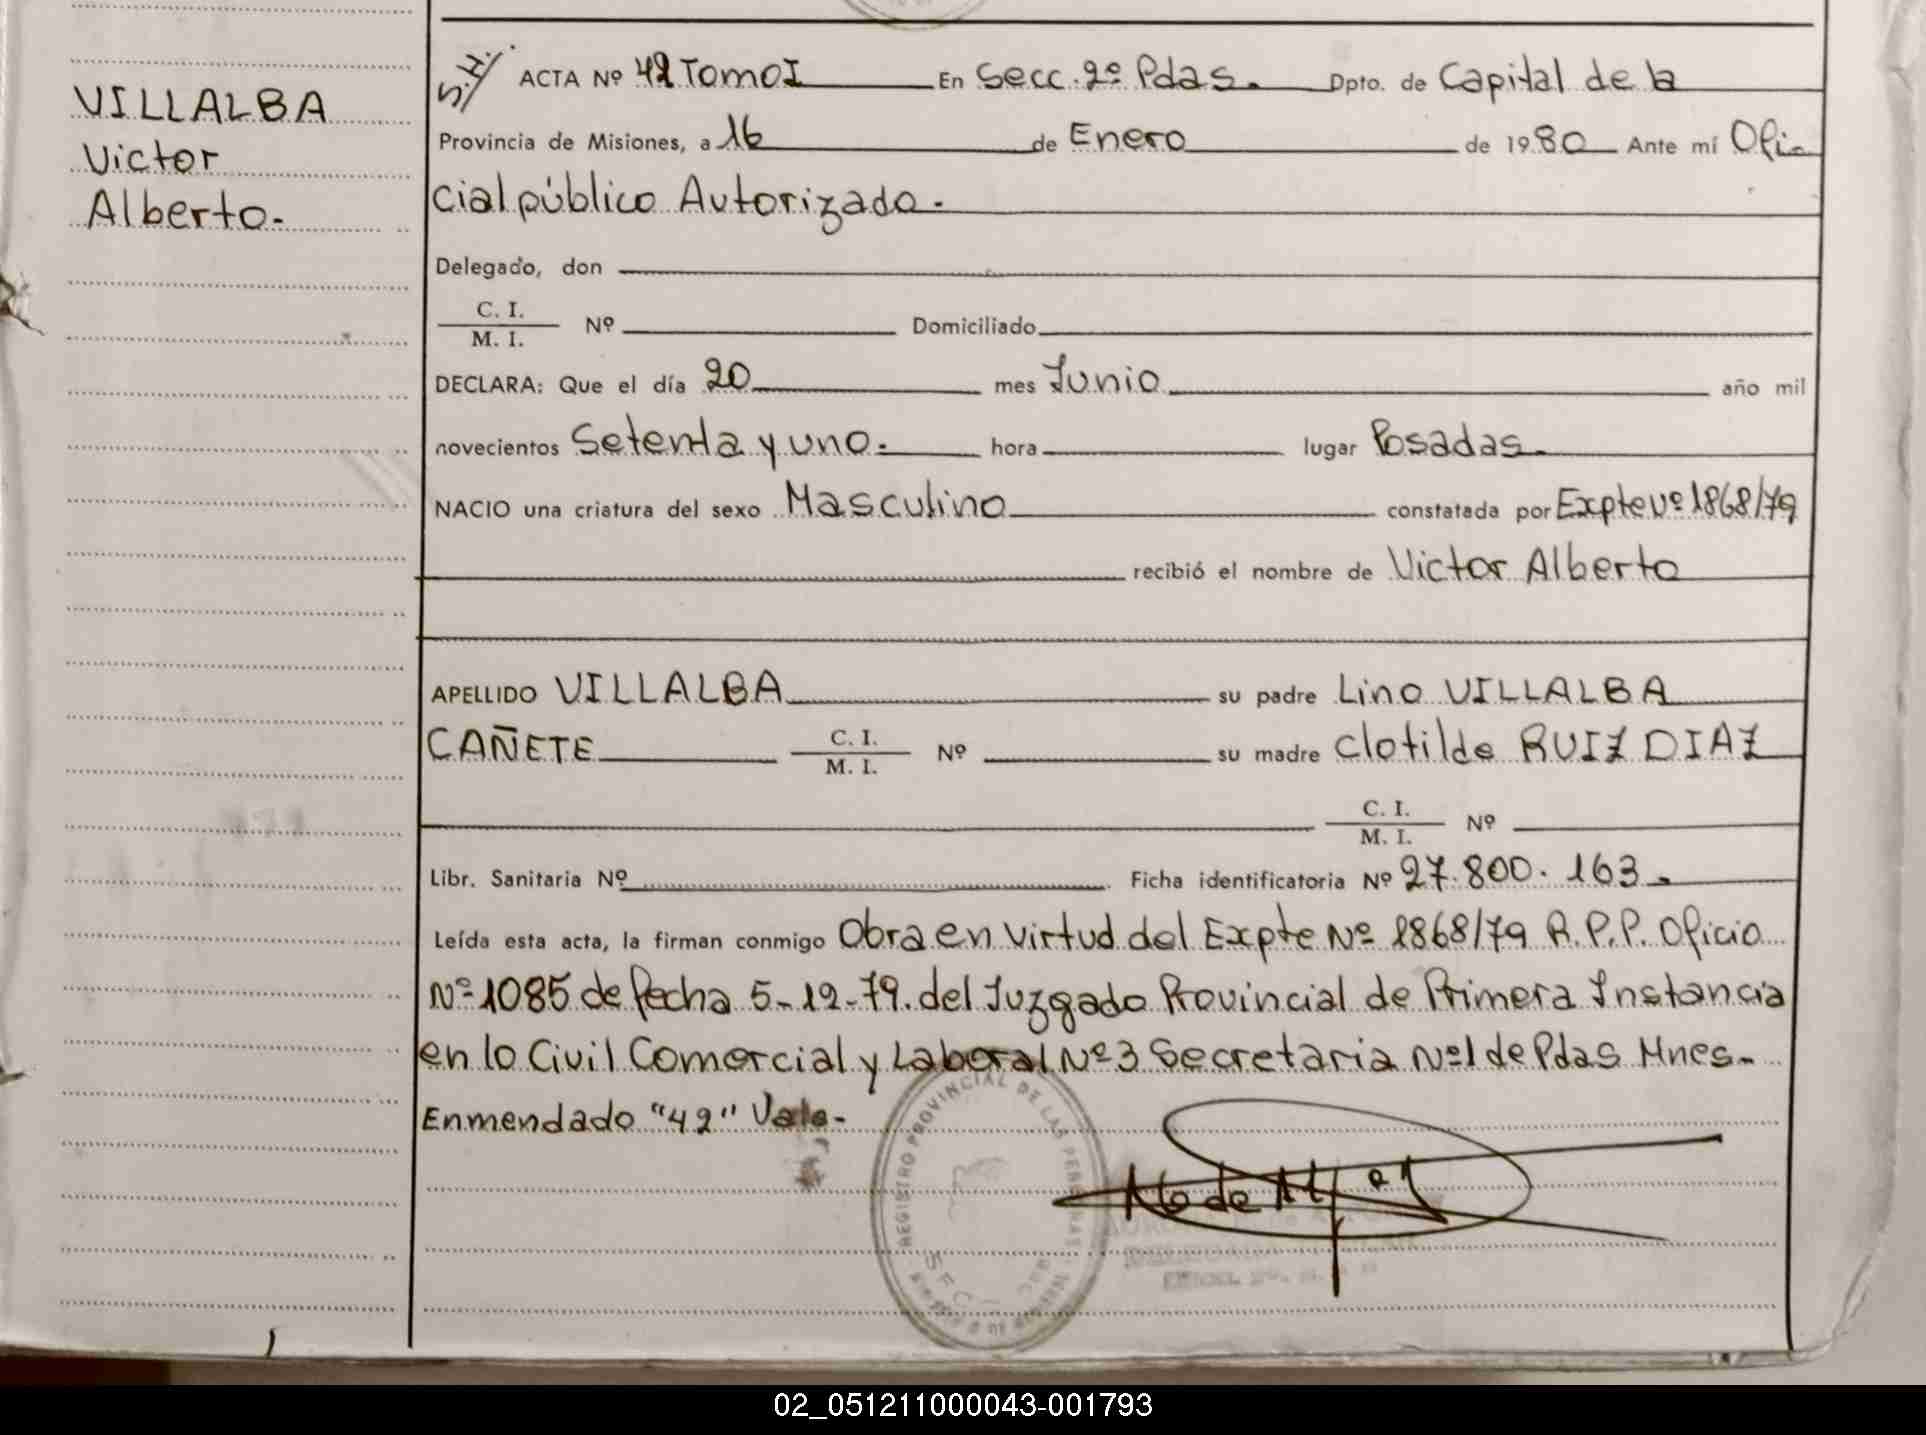 VILLALBA
Victor
Alberto.
S.H. ACTA Nº 42 Tomo I En Secc. 2º Pdas. Dpto. de Capital de la
Provincia de Misiones, a 16 de Enero de 1980 Ante mí Ofi
cial público Autorizado.
Delegado, don
C. I.
M. I. Nº Domiciliado
DECLARA: Que el día 20 mes Junio año mil
novecientos Setenta y uno. hora lugar Posadas.
NACIO una criatura del sexo Masculino constatada por Expte Nº 1868/79
recibió el nombre de Victor Alberto
APELLIDO VILLALBA su padre Lino VILLALBA
CAÑETE C. I. M. I. Nº su madre Clotilde RUIZ DIAZ
C. I.
M. I. Nº
Libr. Sanitaria Nº Ficha identificatoria Nº 27.800.163.
Leída esta acta, la firman conmigo Obra en virtud del Expte Nº 1868/79 R.P.P. Oficio
Nº 1085 de fecha 5-12-79. del Juzgado Provincial de Primera Instancia
en lo Civil Comercial y Laboral Nº 3 Secretaria Nº 1 de Pdas Mnes.
Enmendado "42" Vale.
REGISTRO PROVINCIAL DE LAS PERSONAS
02_051211000043-001793